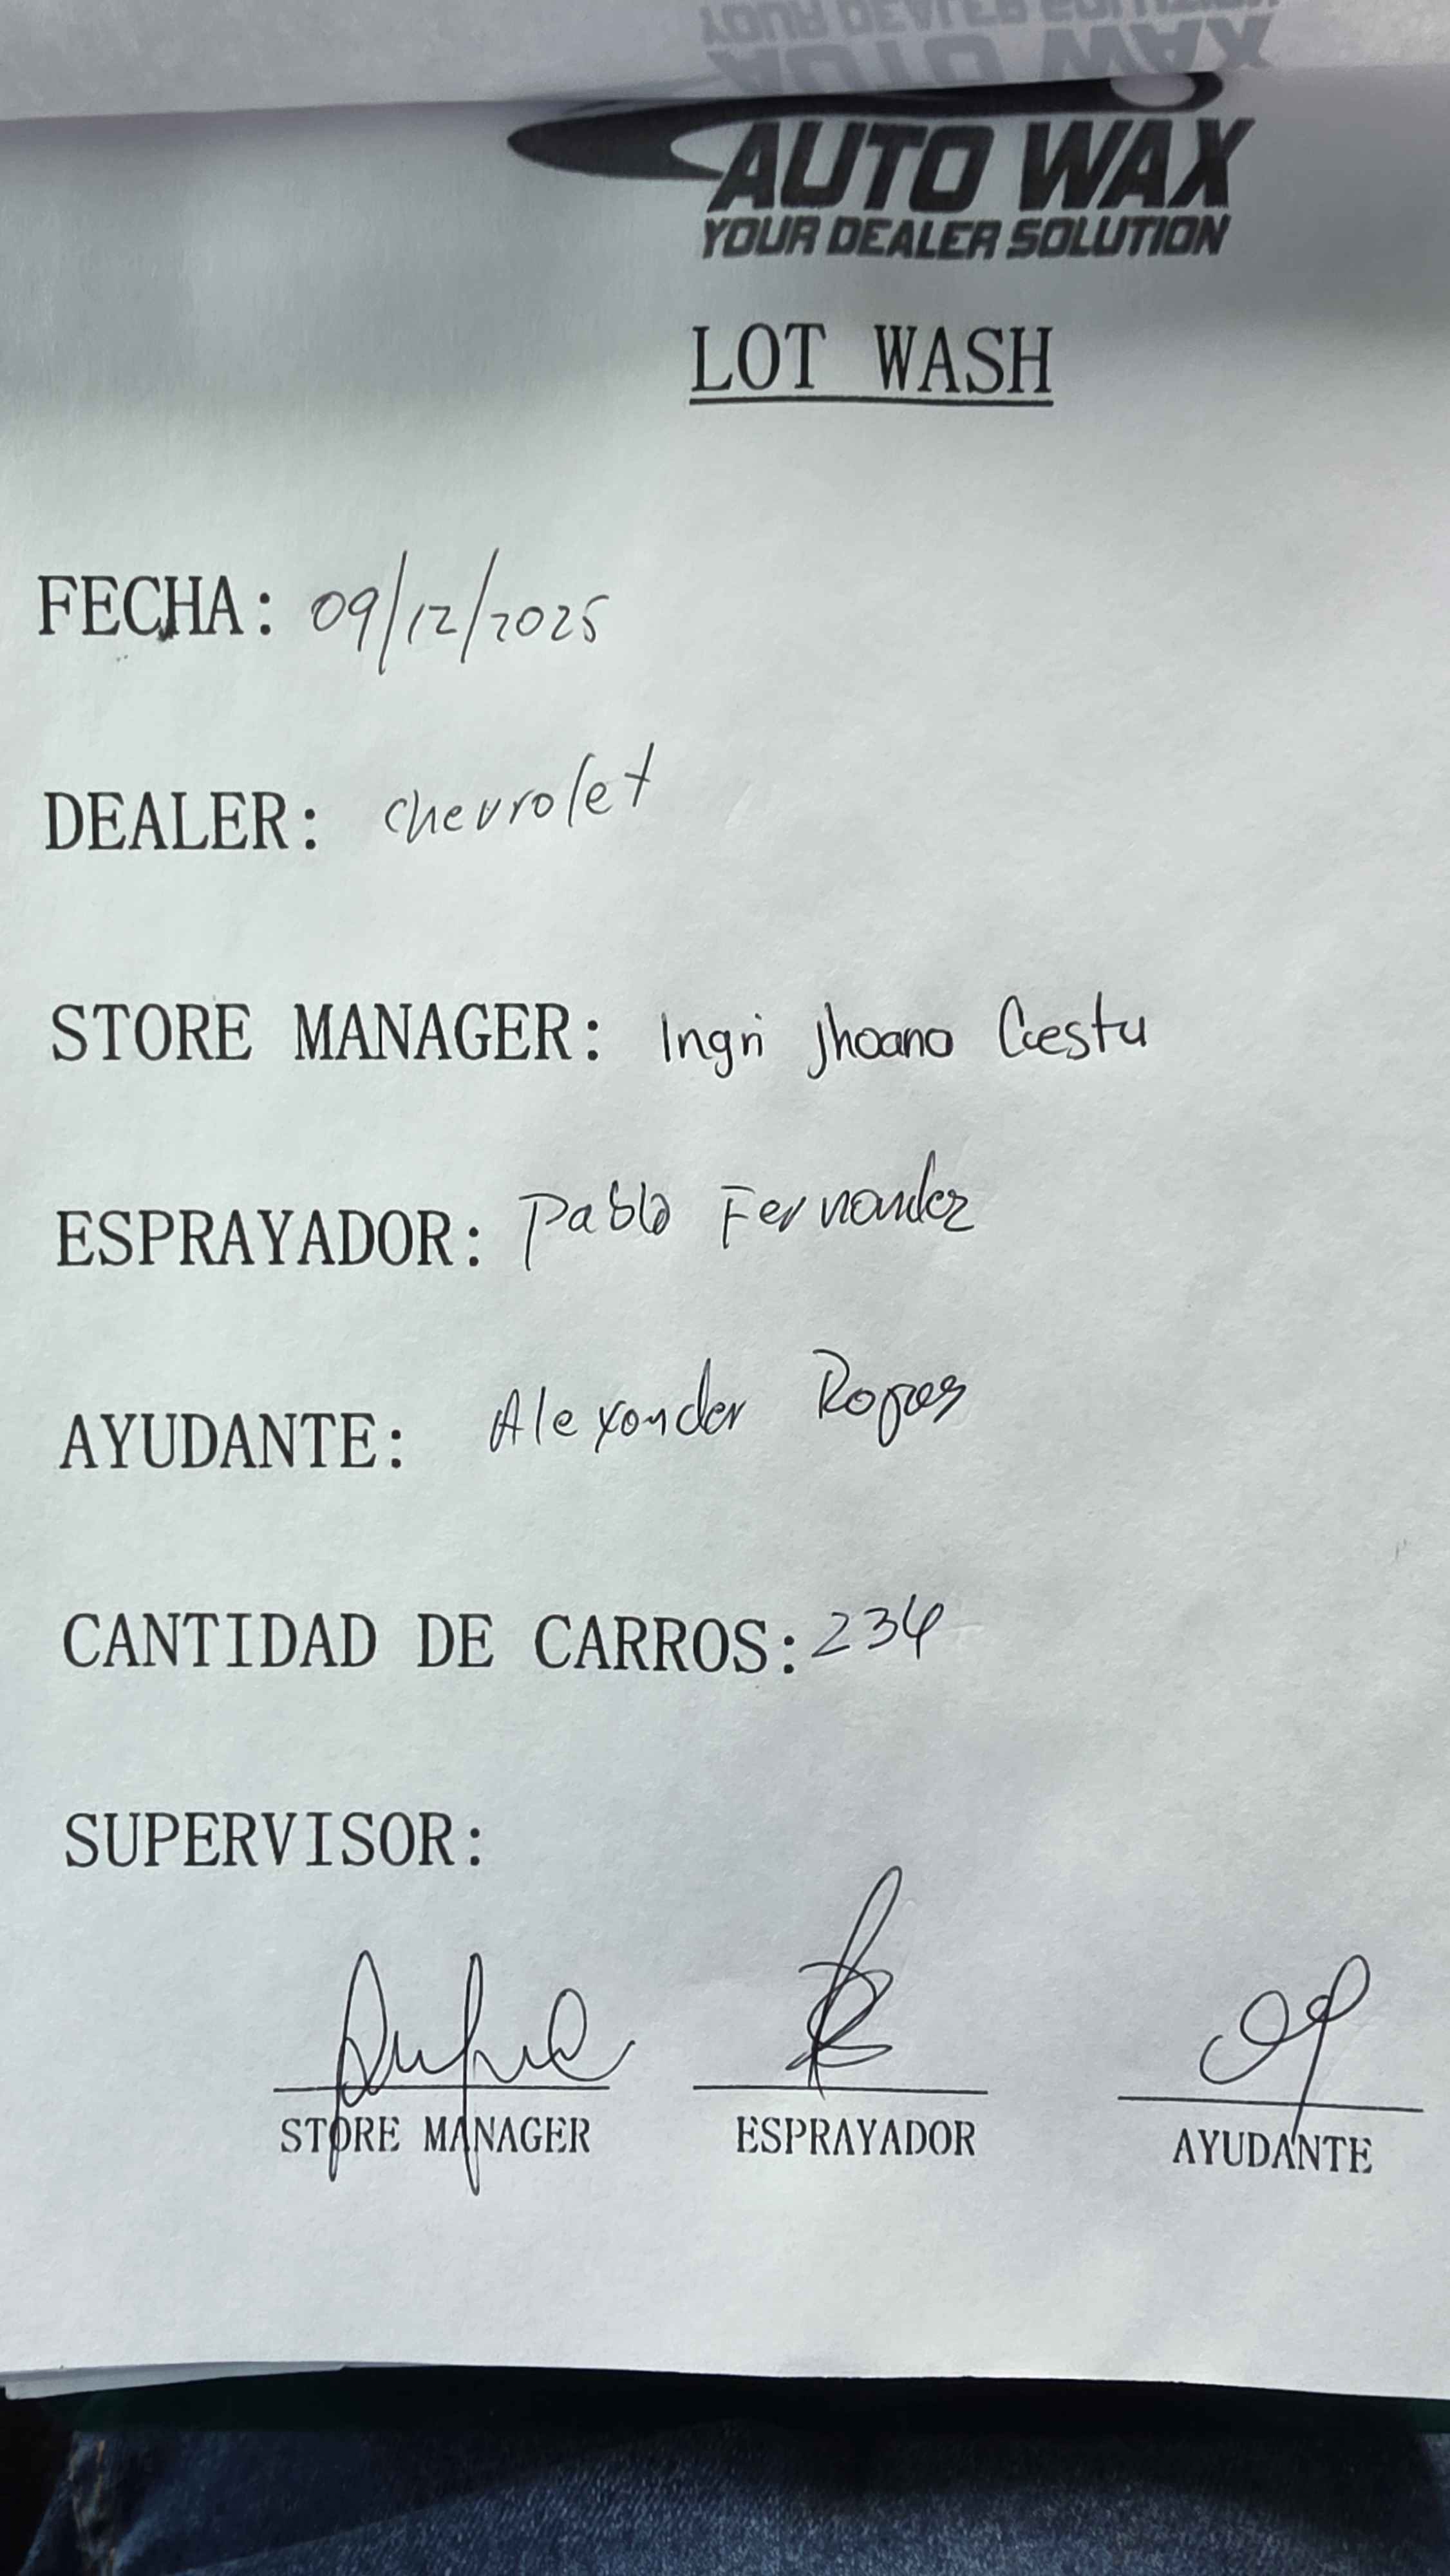 YOUR DEALER SOLUTION
AUTO WAX
AUTO WAX
YOUR DEALER SOLUTION
LOT WASH
FECHA: 09/12/2025
DEALER: chevrolet
STORE MANAGER: Ingri Jhoana
ESPRAYADOR: Pablo Fernandez
AYUDANTE: Alexander
CANTIDAD DE CARROS: 234
SUPERVISOR:
STORE MANAGER ESPRAYADOR AYUDANTE